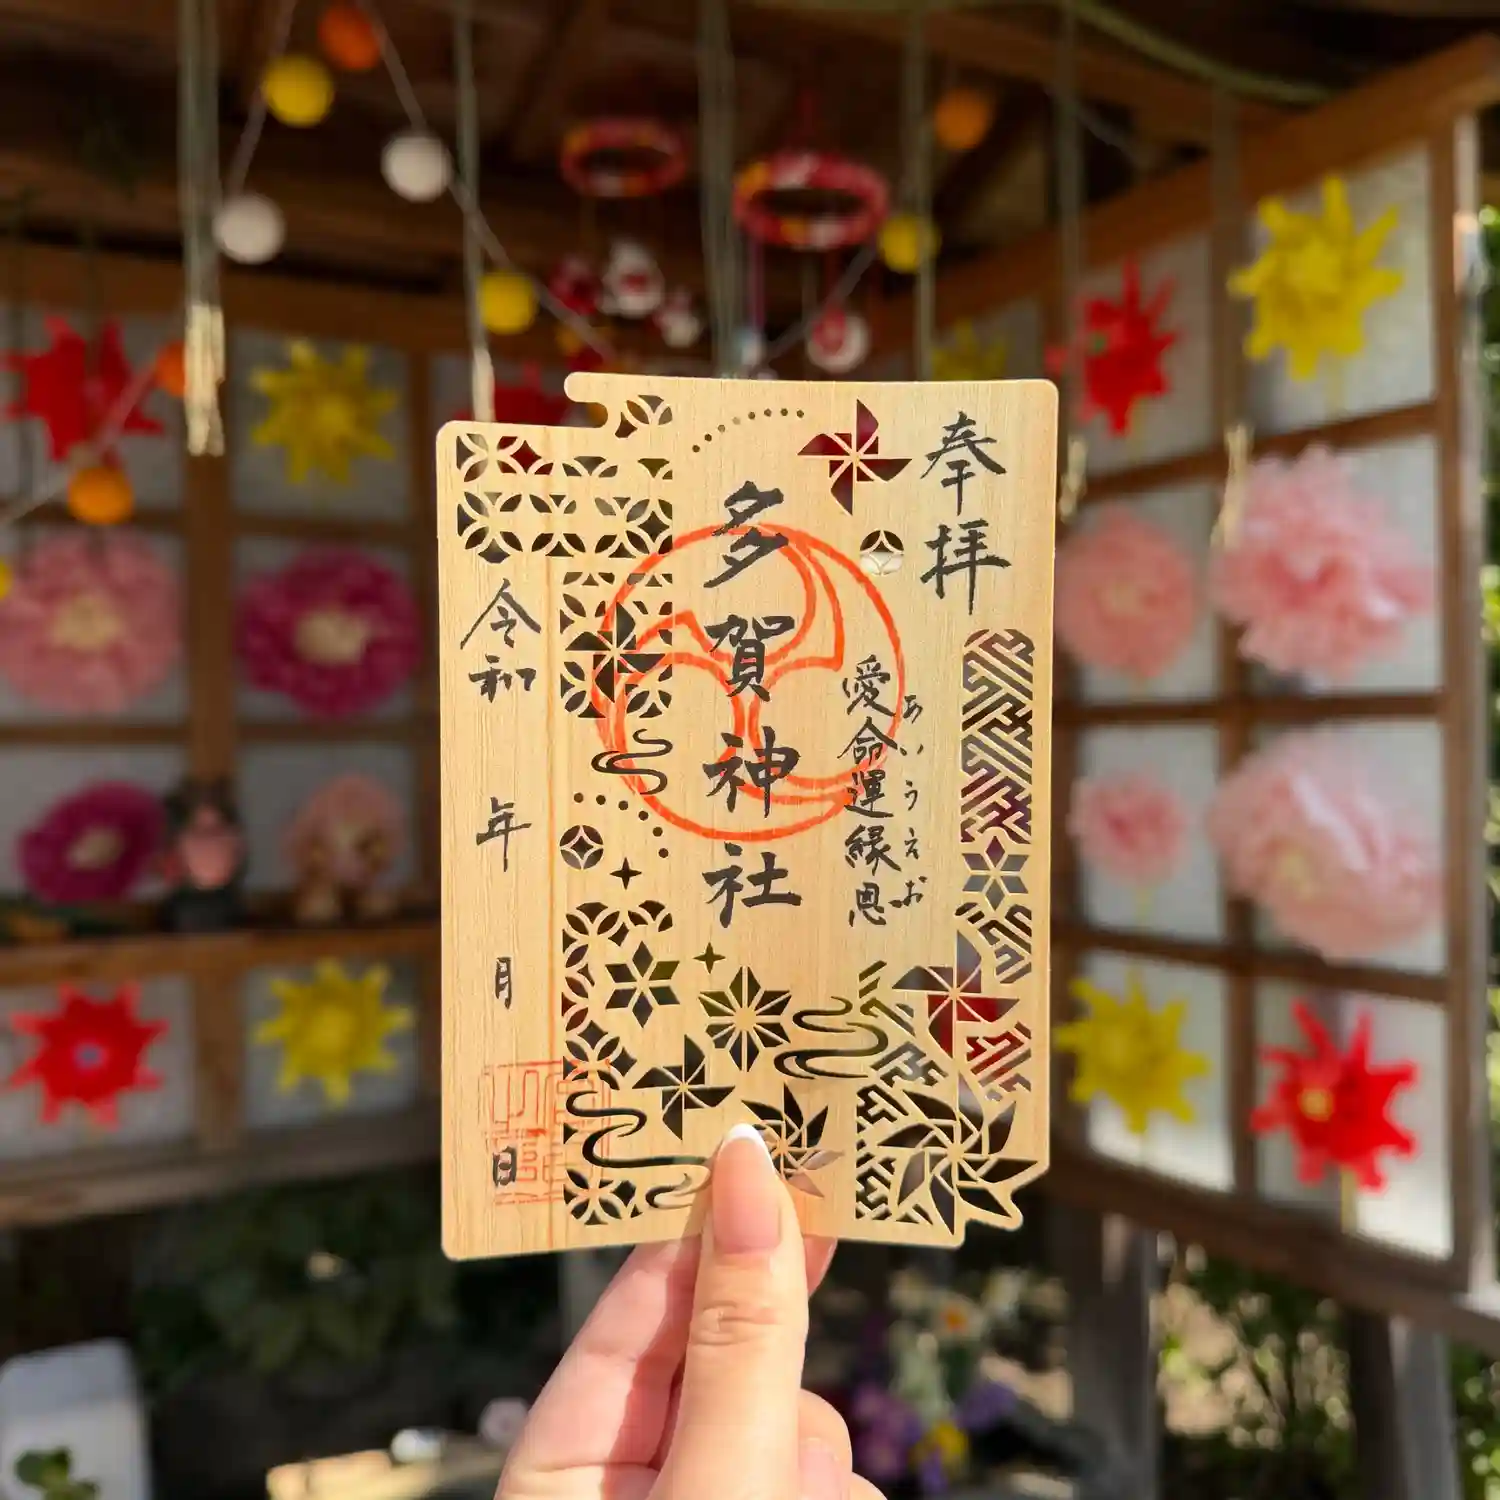 奉拝
あいうえお
愛命運縁恩
多賀神社
令和 年 月 日